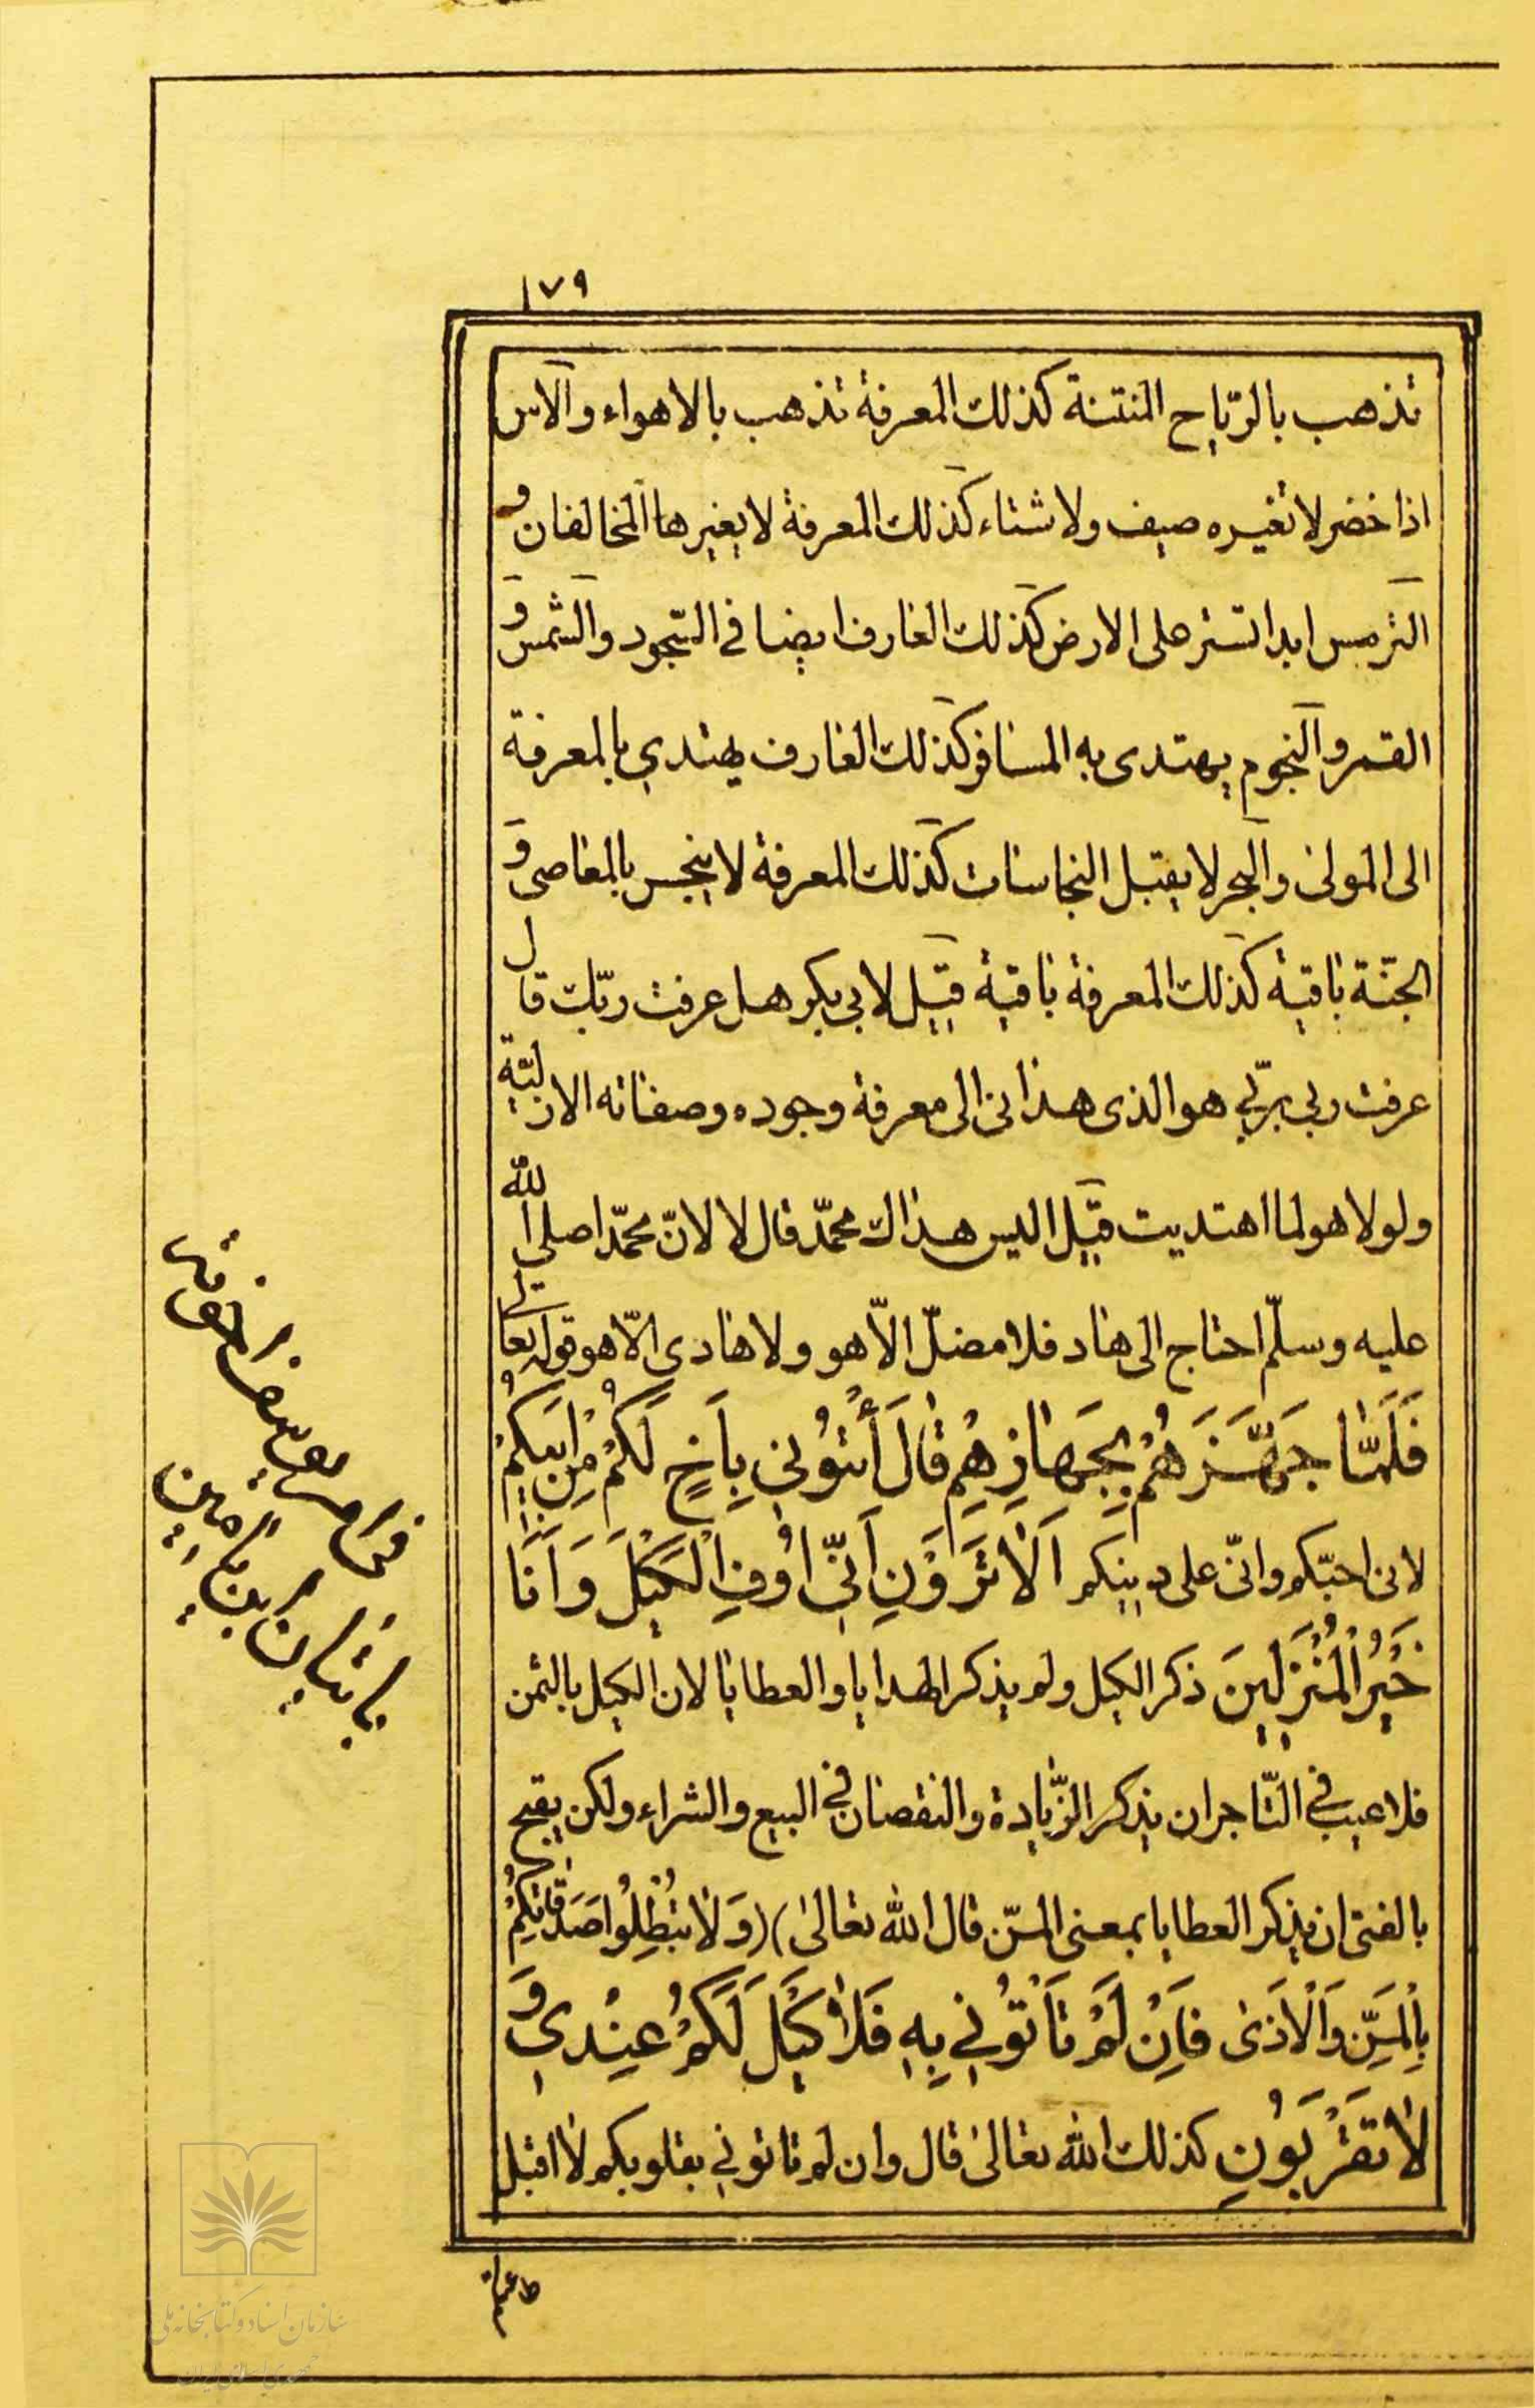 ١٧٩
تذهب بالرّياح المنتنة كذلك المعرفة تذهب بالاهواء والآس
اذا خضر لا تغيره صيف ولا شتاء كذلك المعرفة لا يغيرها المخالفان و
النرميس ابدا تستر على الارض كذلك العارف ايضا في السّجود والشمس و
القمر والنجوم يهتدى به المسافر كذلك العارف يهتدي بالمعرفة
الى المولى والبحر لا يقبل النجاسات كذلك المعرفة لا ينجس بالمعاصى و
الجنّة باقية كذلك المعرفة باقية قيل لابي بكر هل عرفت ربّك قال
عرفت ربي بربّي هو الذى هدانى الى معرفة وجوده وصفاته الازليّة
ولولا هو لما اهتديت قيل اليس هداك محمّد قال لا لانّ محمّدا صلى الله
عليه وسلّم احتاج الى هاد فلا مضلّ الّا هو ولا هادى الّا هو قوله تعالى
فَلَمَّا جَهَّزَهُمْ بِجَهَازِهِمْ قَالَ أْتُوُنِي بِاَخٍ لَكُمْ مِنْ اَبِيكُمْ
لانى احبّكم وانّى على دينكم اَلَا تَرَوْنِ اَنِّي اُوفِ الْكَيْلَ وَاَنَا
خَيْرُ الْمُنْزِلِينَ ذكر الكيل ولم يذكر الهدايا والعطايا لان الكيل بالثمن
فلا عيب في التّاجر ان يذكر الزّيادة والنقصان في البيع والشراء ولكن يقبح
بالفتى ان يذكر العطايا بمعنى المنّ قال الله تعالى) (وَلَا تُبْطِلُوا صَدَقَاتِكُمْ
بِالْمَنِّ وَالْاَذَى فَاِنْ لَمْ تَأْتُونِي بِهِ فَلَا كَيْلَ لَكُمْ عِنْدِي وَ
لَا تَقْرَبُونِ كذلك الله تعالى قال وان لم تاتوني بقلوبكم لا اقبل
سازمان اسناد و کتابخانه ملی
جمهوری اسلامی ایران